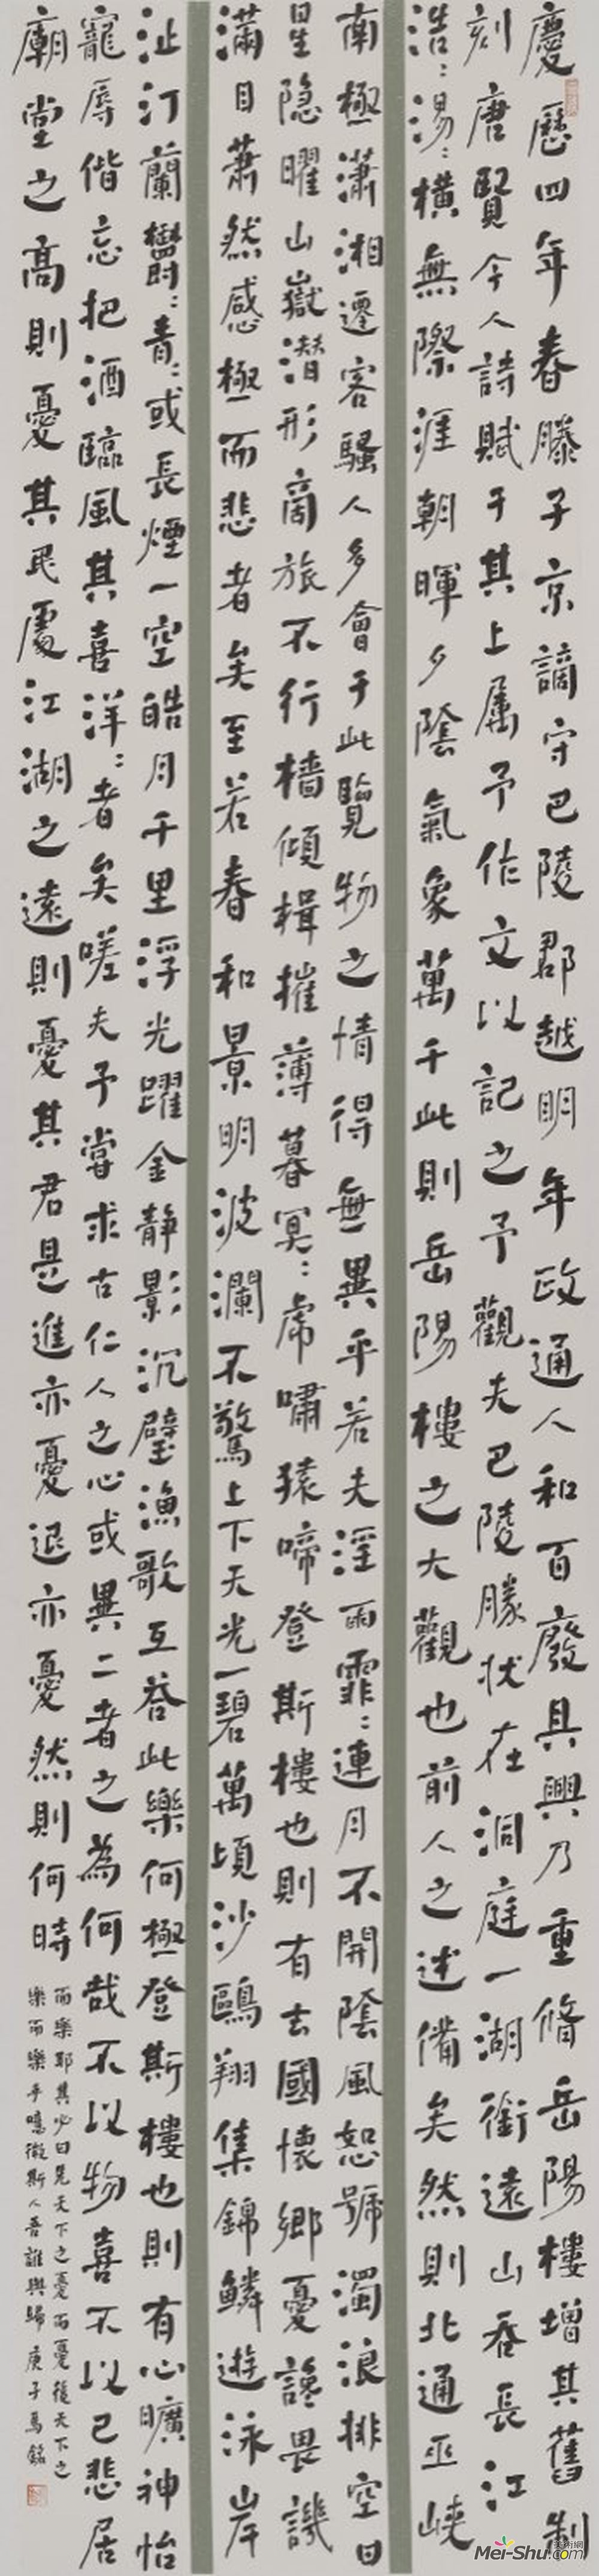 慶歷四年春滕子京謫守巴陵郡越明年政通人和百廢具興乃重脩岳陽樓增其舊制
刻唐賢今人詩賦于其上屬予作文以記之予觀夫巴陵勝狀在洞庭一湖銜遠山吞長江
浩：湯：橫無際涯朝暉夕陰氣象萬千此則岳陽樓之大觀也前人之述備矣然則北通巫峽
南極瀟湘遷客騷人多會于此覽物之情得無異乎若夫淫雨霏：連月不開陰風怒號濁浪排空日
星隐曜山嶽潛形商旅不行檣傾楫摧薄暮冥：虎嘯猿啼登斯樓也則有去國懷鄉憂讒畏譏
滿目蕭然感極而悲者矣至若春和景明波瀾不驚上下天光一碧萬頃沙鷗翔集錦鱗遊泳岸
沚汀蘭鬱：青：或長煙一空皓月千里浮光躍金静影沉璧漁歌互荅此樂何極登斯樓也則有心曠神怡
寵辱偕忘把酒臨風其喜洋：者矣嗟夫予嘗求古仁人之心或異二者之為何哉不以物喜不以己悲居
廟堂之高則憂其民處江湖之遠則憂其君是進亦憂退亦憂然則何時
而樂耶其必曰先天下之憂而憂後天下之
樂而樂乎噫微斯人吾誰與歸 庚子馬銘
Mei-Shu.com
美術網